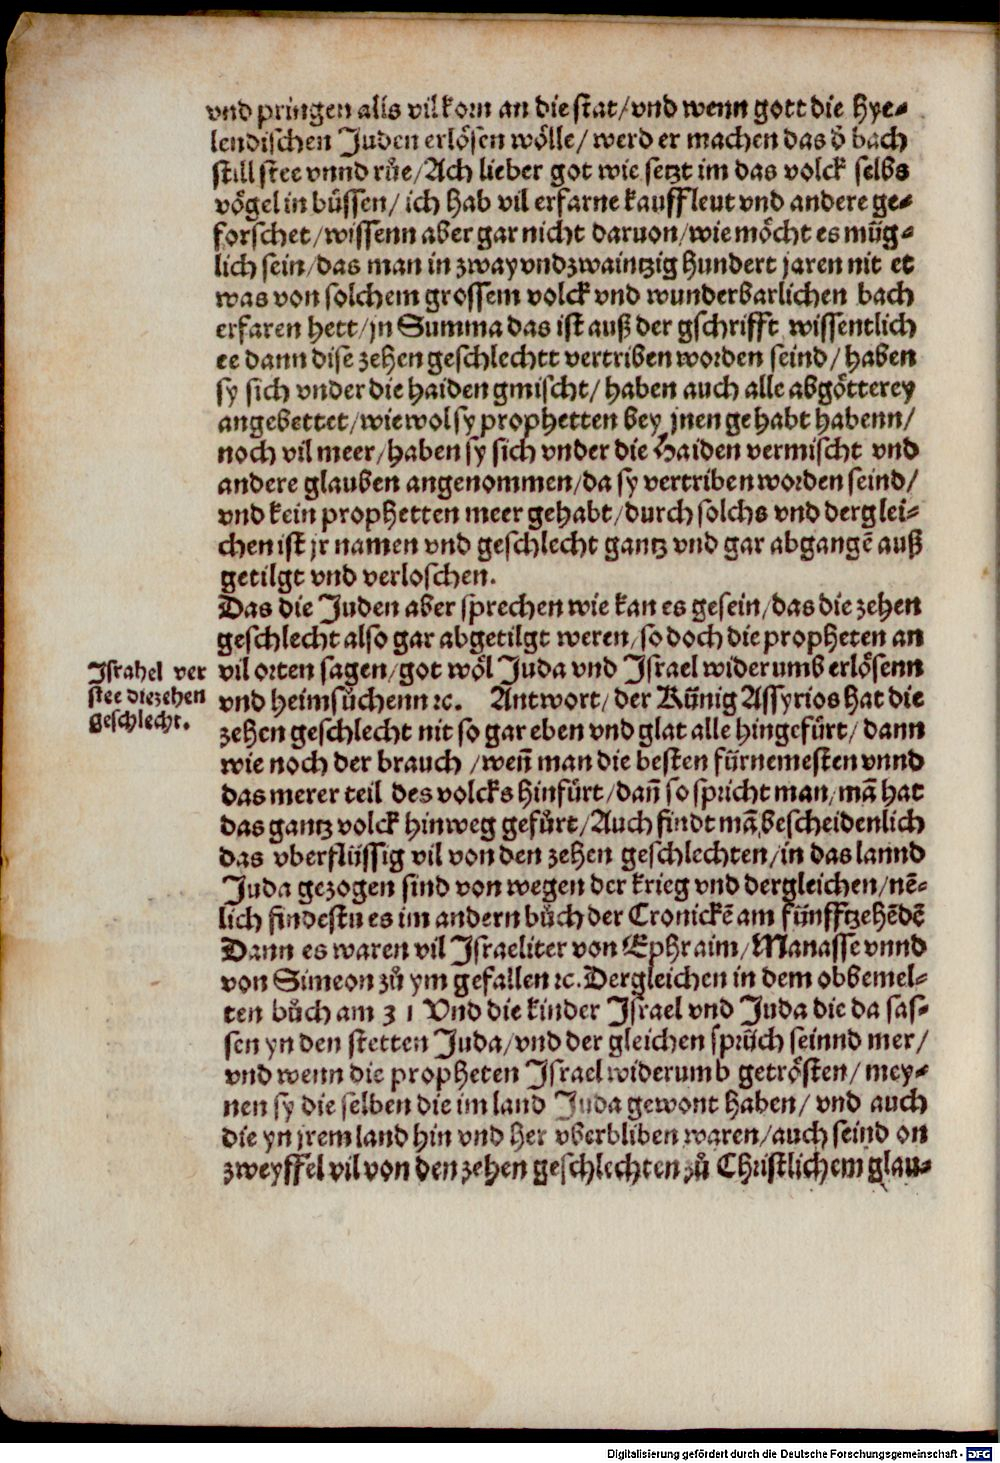 vnd pringen alls vil korn an die stat/vnd wenn gott die hye-
lendischen Juden erlösen wölle/ werd er machen das d̄ bach
still stee vnnd růe/Ach lieber got wie setzt im das volck selbs
vögel in büssen/ ich hab vil erfarne kauffleut vnd andere ge-
forschet/wissenn aber gar nicht daruon/wie möcht es müg-
lich sein/das man in zway vnd zwaintzig hundert jaren nit et
was von solchem grossem volck vnd wunderbarlichen bach
erfaren hett/jn Summa das ist auß der gschrifft wissentlich
ee dann dise zehen geschlechtt vertriben worden seind/ haben
sy sich vnder die haiden gmischt/ haben auch alle abgötterey
angebettet/wiewol sy prophetten bey jnen gehabt habenn/
noch vil meer/haben sy sich vnder die Haiden vermischt vnd
andere glauben angenommen/da sy vertriben worden seind/
vnd kein prophetten meer gehabt/durch solchs vnd derglei-
chen ist jr namen vnd geschlecht gantz vnd gar abgangē auß
getilgt vnd verloschen.
Das die Juden aber sprechen wie kan es gesein/das die zehen
geschlecht also gar abgetilgt weren/so doch die propheten an
vil orten sagen/got wöl Juda vnd Israel widerumb erlösenn
vnd heimsůchenn ꝛc. Antwort/ der Künig Assyrios hat die
zehen geschlecht nit so gar eben vnd glat alle hingefürt/ dann
wie noch der brauch /weñ man die besten fürnemesten vnnd
das merer teil des volcks hinfürt/dañ so spricht man/mā hat
das gantz volck hinweg gefürt/Auch findt mā bescheidenlich
das vberflüssig vil von den zehen geschlechten/in das lannd
Juda gezogen sind von wegen der krieg vnd dergleichen/nē-
lich findestu es im andern bůch der Cronickē am fünfftzehēdē
Dann es waren vil Israeliter von Ephraim/Manasse vnnd
von Simeon zů ym gefallen ꝛc. Dergleichen in dem obbemel-
ten bůch am 31 Vnd die kinder Israel vnd Juda die da sas-
sen yn den stetten Juda/vnd der gleichen sprüch seinnd mer/
vnd wenn die propheten Israel widerumb getrösten/ mey-
nen sy die selben die im land Juda gewont haben/ vnd auch
die yn jrem land hin vnd her vberbliben waren/auch seind on
zweyffel vil von den zehen geschlechten zů Christlichem glau-
Israhel ver
stee die zehen
geschlecht.
Digitalisierung gefördert durch die Deutsche Forschungsgemeinschaft - DFG